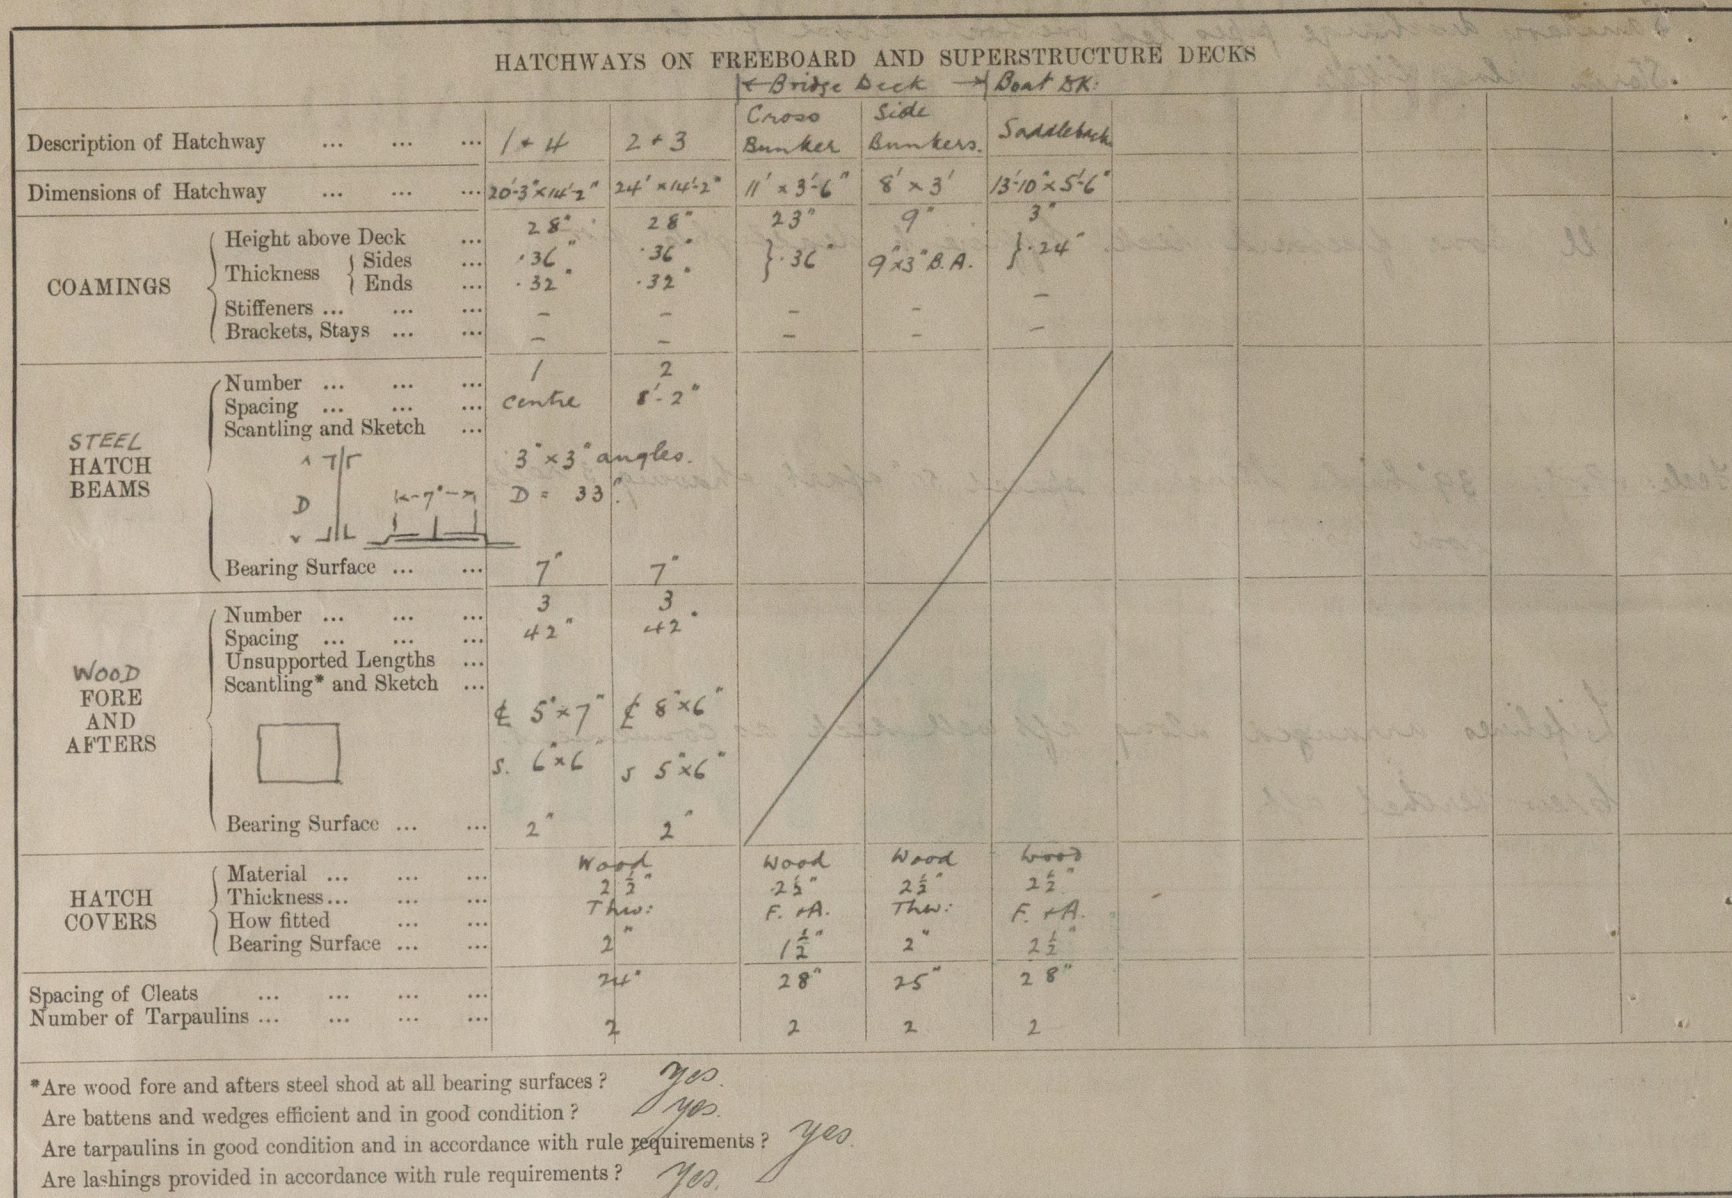 HATCHWAYS ON FREEBOARD AND SUPERSTRUCTURE DECKS
|← Bridge Deck →| Boat DK:
Description of Hatchway ... ... ... 1 + 4 2 + 3 Cross Bunker Side Bunkers. Saddleback
Dimensions of Hatchway ... ... ... 20'-3"×14'-2" 24'×14'-2" 11'×3'-6" 8'×3' 13'-10"×5'-6"
COAMINGS
Height above Deck ... 28" 28" 23" 9" 3"
Thickness { Sides ... .36" .36" } .36" 9"×3" B.A. } .24"
Ends ... .32" .32"
Stiffeners ... ... ... – – – – –
Brackets, Stays ... ... – – – – –
STEEL HATCH BEAMS
Number ... ... ... 1 2
Spacing ... ... ... centre 8'-2"
Scantling and Sketch ...
3"×3" angles.
D |←7"→| D = 33".
Bearing Surface ... ... 7" 7"
WOOD FORE AND AFTERS
Number ... ... ... 3 3
Spacing ... ... ... 42" 42"
Unsupported Lengths ...
Scantling* and Sketch ...
℄ 5"×7" ℄ 8"×6"
S. 6"×6" S 5"×6"
Bearing Surface ... ... 2" 2"
HATCH COVERS
Material ... ... ... Wood Wood Wood Wood
Thickness... ... ... 2½" 2½" 2½" 2½"
How fitted ... ... Thw: F. +A. Thw: F. +A.
Bearing Surface ... ... 2" 1½" 2" 2½"
Spacing of Cleats ... ... ... ... 24" 28" 25" 28"
Number of Tarpaulins ... ... ... ... 2 2 2 2
*Are wood fore and afters steel shod at all bearing surfaces ? yes.
Are battens and wedges efficient and in good condition ? yes.
Are tarpaulins in good condition and in accordance with rule requirements ? yes.
Are lashings provided in accordance with rule requirements ? yes.